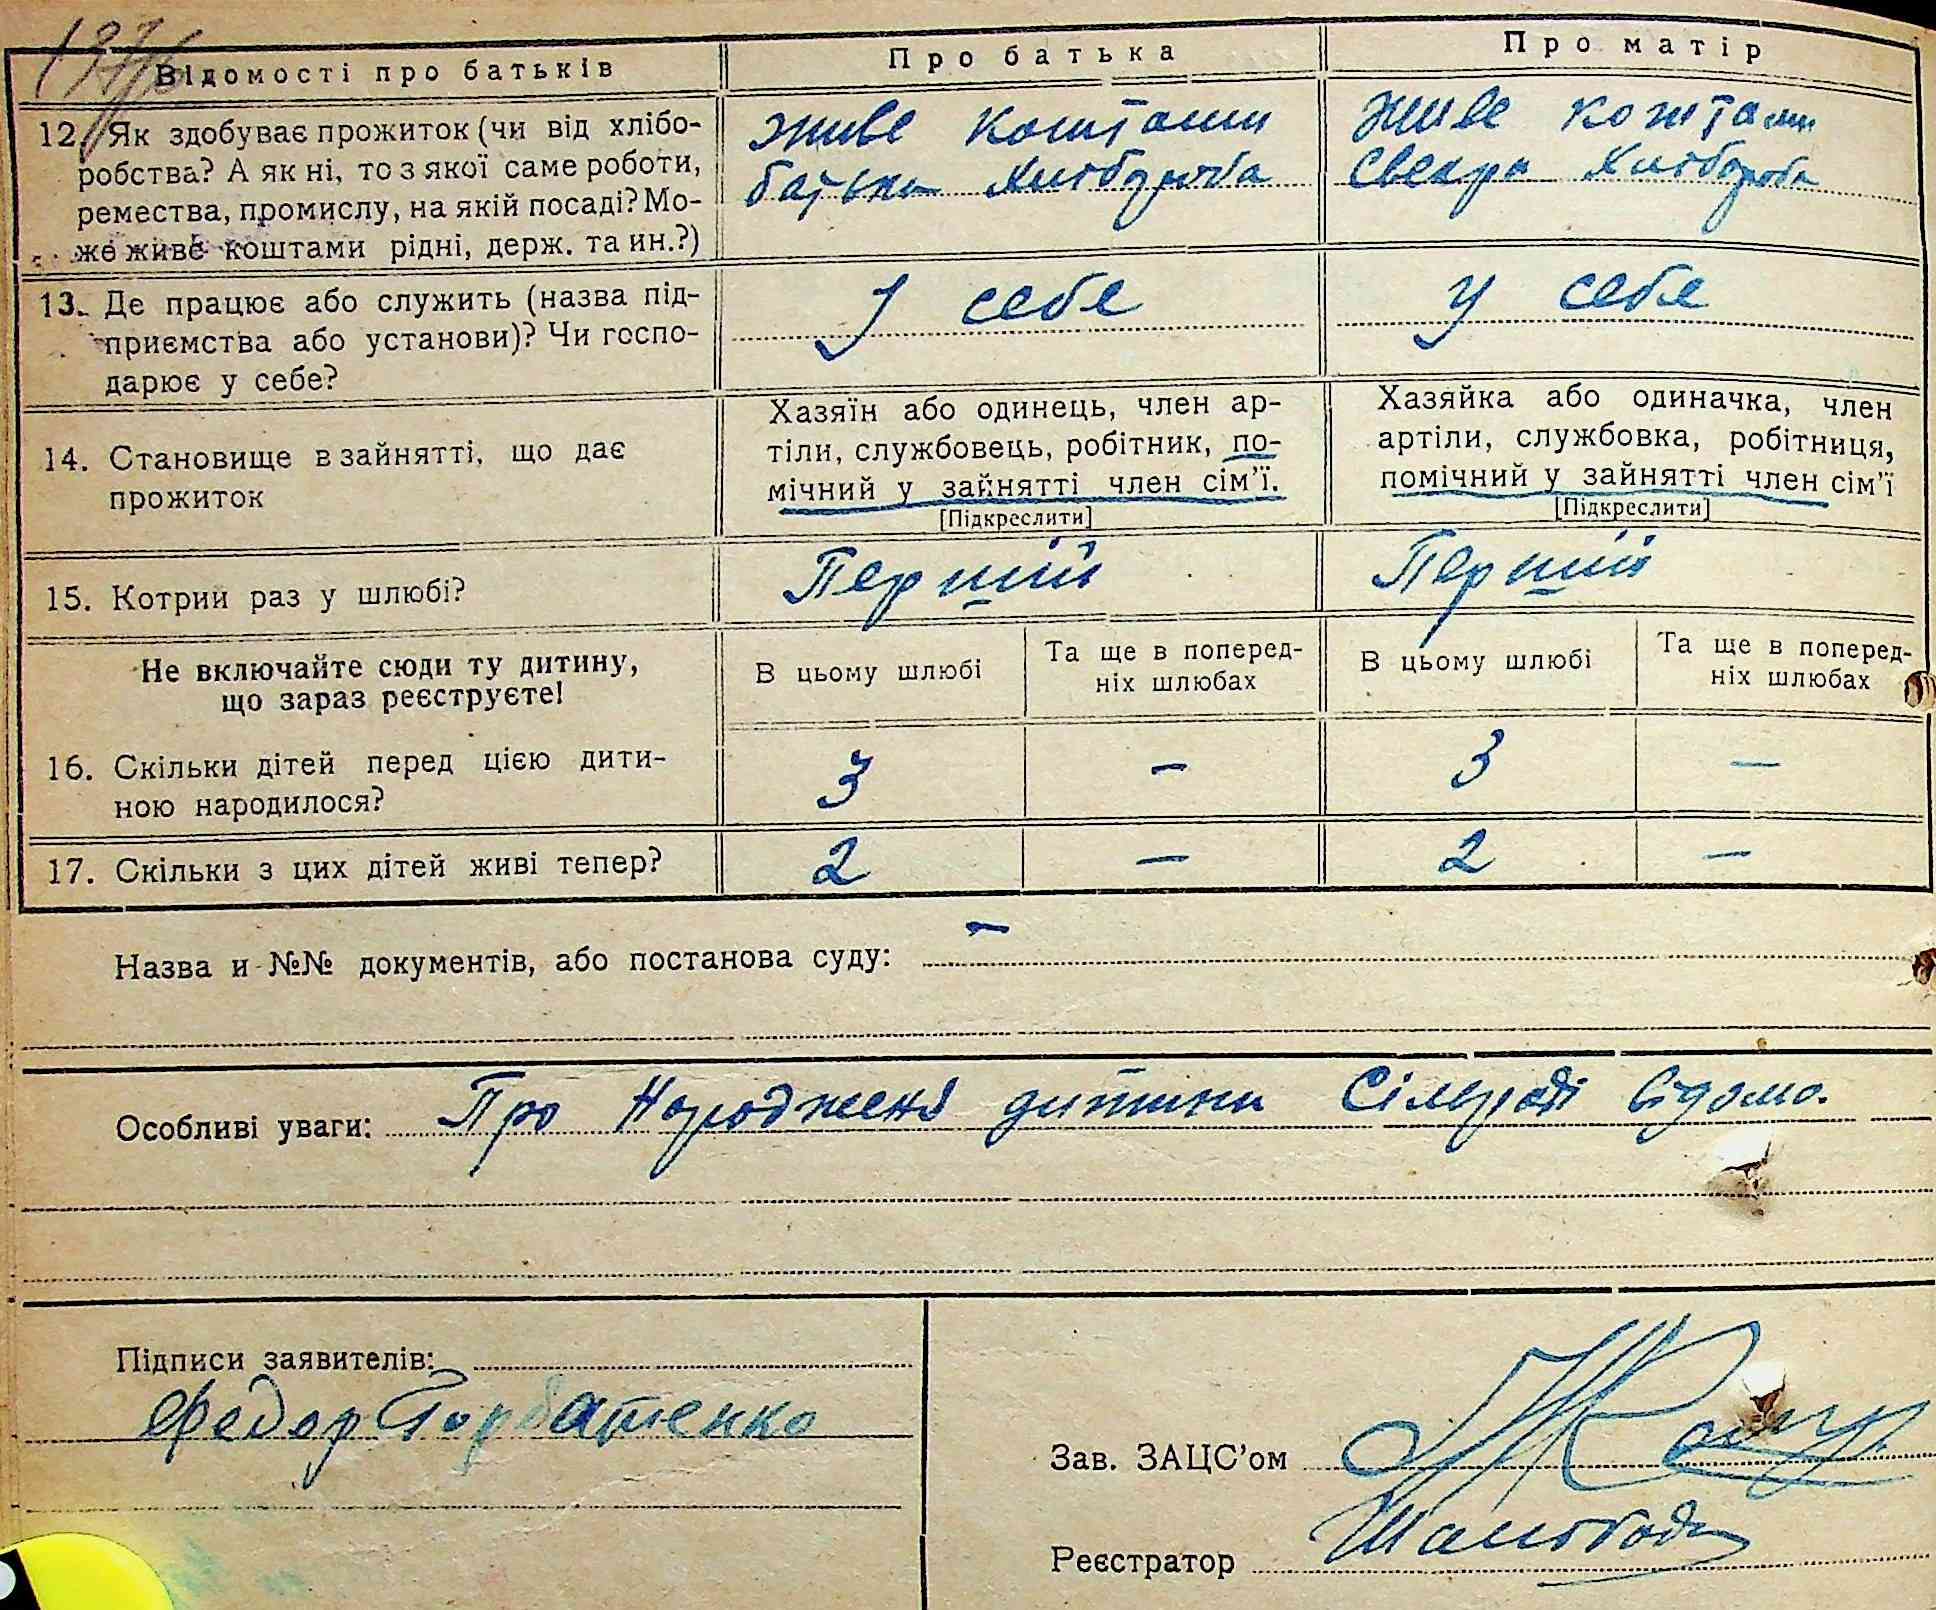 Відомості про батьків
Про батька
Про матір
12. Як здобуває прожиток (чи від хлібо-
робства? А як ні, то з якої саме роботи,
ремества, промислу, на якій посаді? Мо-
же живе коштами рідні, держ. та ин.?)
живе коштами
батька хлібороба
живе коштами
свекра хлібороба
13. Де працює або служить (назва під-
приємства або установи)? Чи госпо-
дарює у себе?
у себе
у себе
14. Становище в зайнятті, що дає
прожиток
Хазяїн або одинець, член ар-
тіли, службовець, робітник, по-
мічний у зайнятті член сім'ї.
[Підкреслити]
Хазяйка або одиначка, член
артіли, службовка, робітниця,
помічний у зайнятті член сім'ї
[Підкреслити]
15. Котрий раз у шлюбі?
Перший
Перший
Не включайте сюди ту дитину,
що зараз реєструєте!
В цьому шлюбі
Та ще в поперед-
ніх шлюбах
В цьому шлюбі
Та ще в поперед-
ніх шлюбах
16. Скільки дітей перед цією дити-
ною народилося?
3
—
3
—
17. Скільки з цих дітей живі тепер?
2
—
2
—
Назва и №№ документів, або постанова суду: —
Особливі уваги: Про народженя дитини Сільраді відомо.
Підписи заявителів:
Федор Горбатенко
Зав. ЗАЦС'ом
Реєстратор